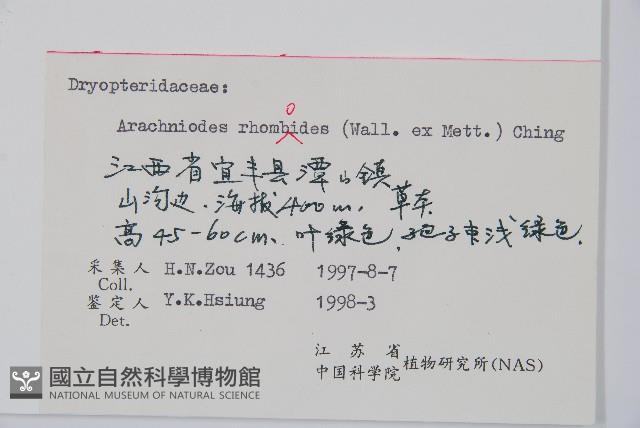 Dryopteridaceae:
o
Arachniodes rhombides (Wall. ex Mett.) Ching
江西省宜丰县潭山镇
山沟边.海拔400m. 草本
高45-60cm、叶绿色,孢子束浅绿色.
采集人 H.N.Zou 1436 1997-8-7
Coll.
鉴定人 Y.K.Hsiung 1998-3
Det.
江苏省
中国科学院植物研究所(NAS)
國立自然科學博物館
NATIONAL MUSEUM OF NATURAL SCIENCE